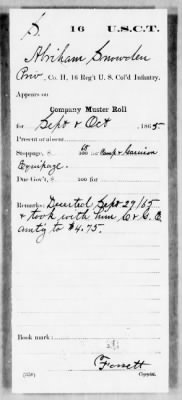 S. 16 U.S.C.T.
Abriham Snowden
Priv, Co. H, 16 Reg't U. S. Col'd Infantry.
Appears on
Company Muster Roll
for Sept & Oct, 1865
Present or absent
Stoppage, $ 100 for Camp & Garrison
Equipage.
Due Gov't, $ 100 for
Remarks: Deserted Sept 27/65
& took with him C & G. E
amtg to $4.75.
Book mark:
Fossett
(358) Copyist.